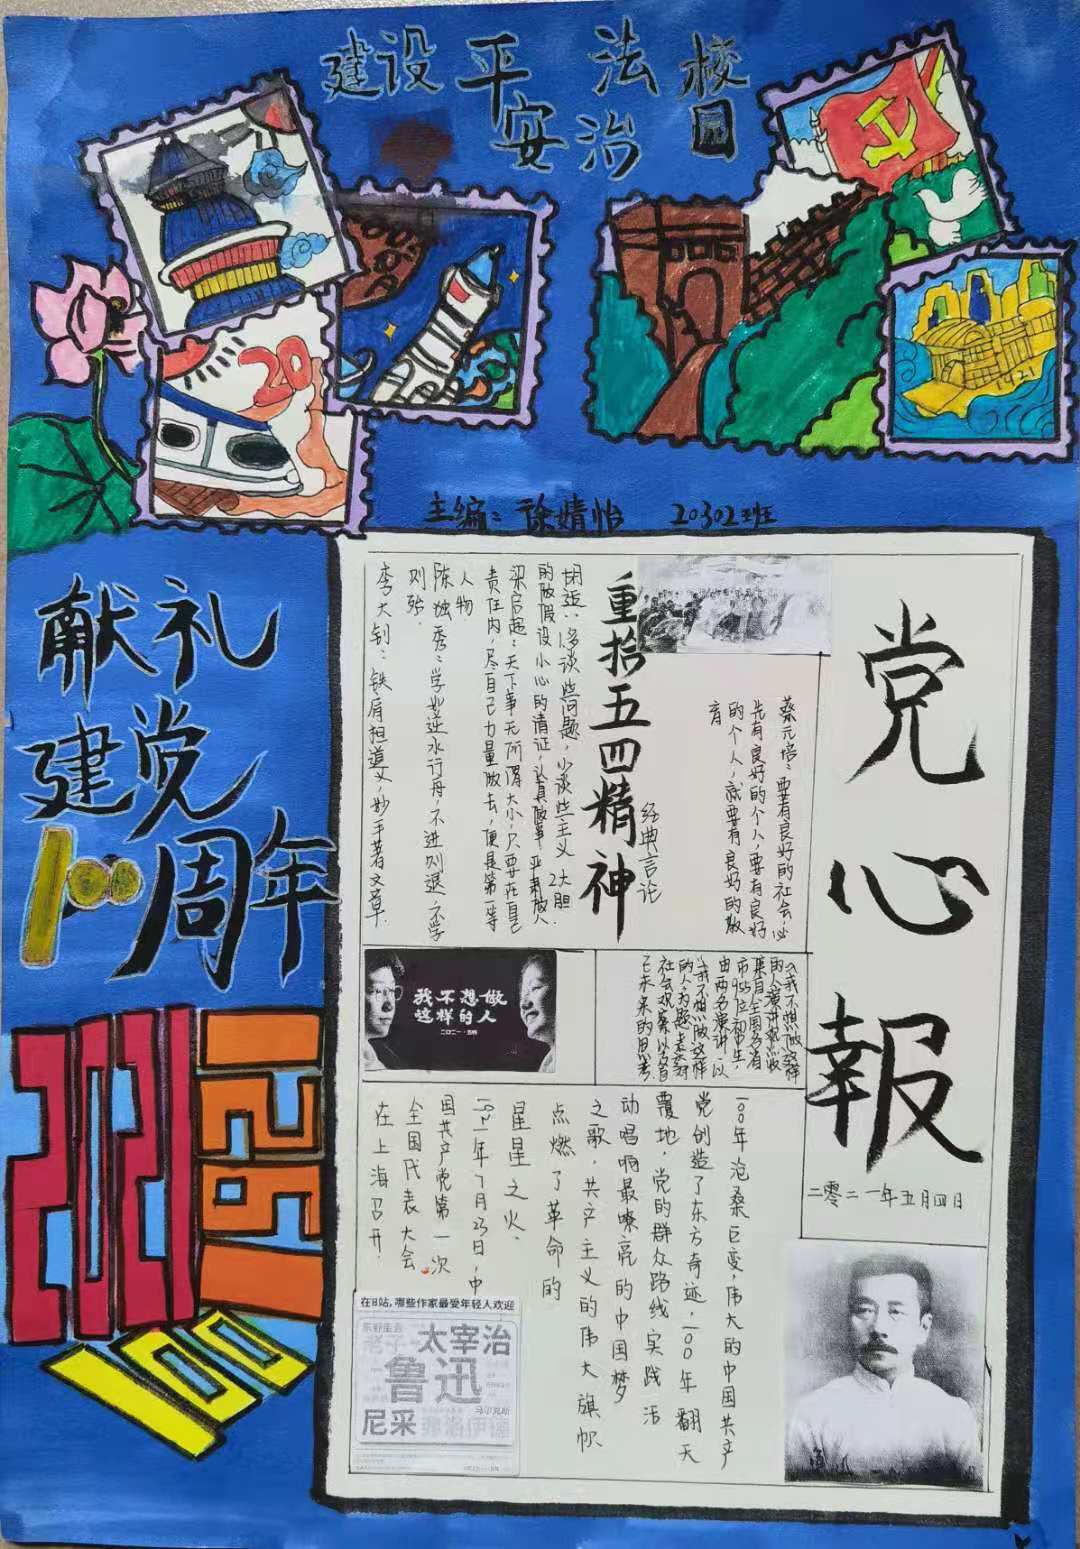 建设平安法治校园
20
1921
主编：徐婧怡 20302班
献礼
建党
100周年
2021
1921
100
党心報
二零二一年五月四日
重拾五四精神
经典言论
蔡元培：要有良好的社会，必
先有良好的个人，要有良好
的个人，就要有良好的教
育
胡适：多谈些问题，少谈些主义 大胆
的做假设小心的清证，认真做事 严肃做人
梁启超：天下事无所谓大小，只要在自己
责任内，尽自己力量做去，便是第一等
人物
陈独秀：学如逆水行舟，不进则退，不学
则殆。
李大钊：铁肩担道义，妙手著文章
我不想做
这样的人
二〇二一·五四
《我不想做这样
的人》演讲
集自全国多省
市955位初中生，
由两名演讲，以
《我不想做这样
的人》为题
社会观察以及自
己未来的思考
100年沧桑巨变，伟大的中国共产
党创造了东方奇迹，100年翻天
覆地，党的群众路线实践活
动唱响最嘹亮的中国梦
之歌，共产主义的伟大旗帜
点燃了革命的
星星之火、
1921年7月23日，中
国共产党第一次
全国代表大会
在上海召开。
在B站，哪些作家最受年轻人欢迎
太宰治
鲁迅
马尔克斯
尼采
弗洛伊德